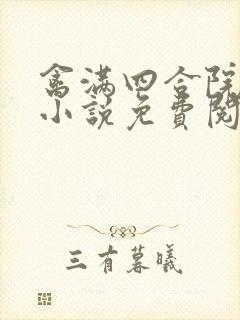 禽满四合院
小说免费阅
三有暮曦